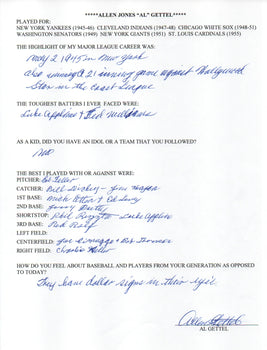 *****ALLEN JONES "AL" GETTEL*****
PLAYED FOR:
NEW YORK YANKEES (1945-46) CLEVELAND INDIANS (1947-48) CHICAGO WHITE SOX (1948-51)
WASHINGTON SENATORS (1949) NEW YORK GIANTS (1951) ST. LOUIS CARDINALS (1955)
THE HIGHLIGHT OF MY MAJOR LEAGUE CAREER WAS:
May 2 1945 in New York
also winning a 21 inning game against Hollywood
Stars in the Coast League
THE TOUGHEST BATTERS I EVER FACED WERE:
Luke Appling & Ted Williams
AS A KID, DID YOU HAVE AN IDOL OR A TEAM THAT YOU FOLLOWED?
No
THE BEST I PLAYED WITH OR AGAINST WERE:
PITCHER: Bob Feller
CATCHER: Bill Dickey - Jim Hegan
1ST BASE:
2ND BASE: Jerry
SHORTSTOP: Phil Rizzuto - Luke Appling
3RD BASE: Red Rolfe
LEFT FIELD:
CENTERFIELD: Joe Dimaggio
RIGHT FIELD: Charlie Keller
HOW DO YOU FEEL ABOUT BASEBALL AND PLAYERS FROM YOUR GENERATION AS OPPOSED
TO TODAY?
They have dollar signs in their eyes
Allen Gettel
AL GETTEL